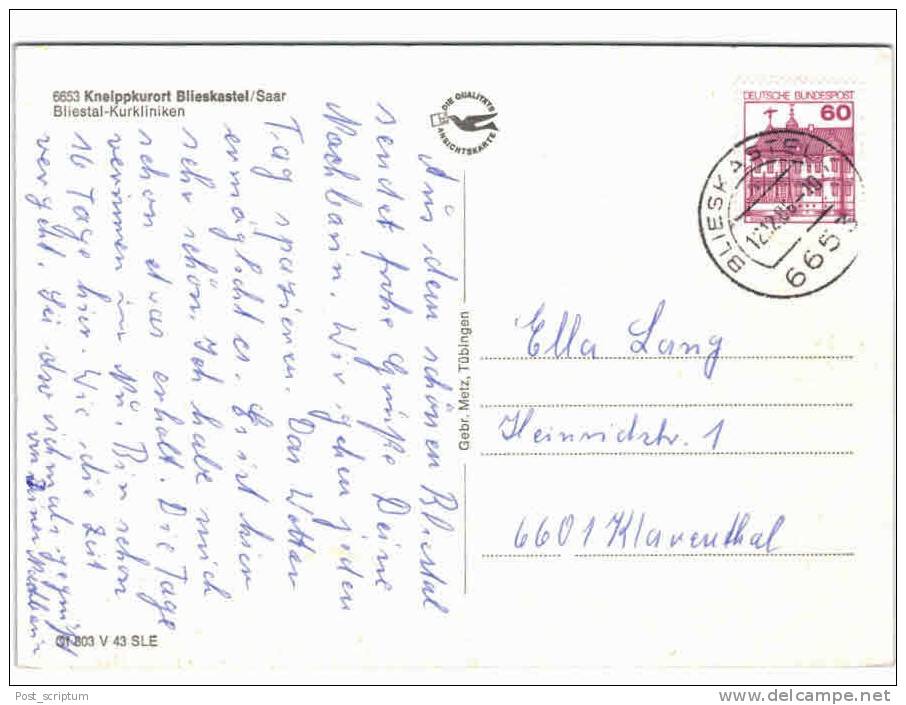 6653 Kneippkurort Blieskastel/Saar
Bliestal-Kurkliniken
DIE QUALITÄTS
ANSICHTSKARTE
Aus dem schönen Bliestal
sendet frohe Grüße Deine
Nachbarin. Wir gehen jeden
Tag spazieren. Das Wetter
ermöglicht es. Es ist hier
sehr schön. Ich habe mich
schon etwas erholt. Die Tage
verrinnen im Nu. Bin schon
16 Tage hier. Wie die Zeit
vergeht. Sei also nochmals gegrüßt
von Deiner Nachbarin
Gebr. Metz, Tübingen
DEUTSCHE BUNDESPOST
60
BLIESKASTEL
6653
Ella Lang
Heinrichstr. 1
6601 Klarenthal
803 V 43 SLE
Post_scriptum
www.delcampe.net